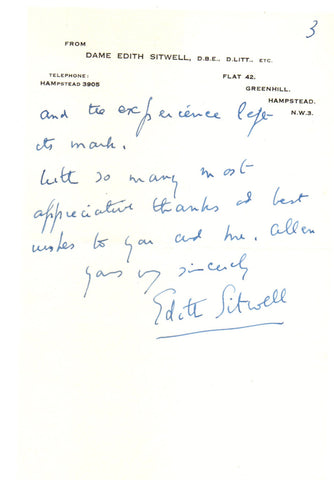 3
FROM
DAME EDITH SITWELL, D.B.E., D.LITT., ETC.
TELEPHONE:
HAMPSTEAD 3905
FLAT 42.
GREENHILL,
HAMPSTEAD.
N.W.3.
and the experience left
its mark.
With so many most
appreciative thanks and best
wishes to you and Mr. Allen
yours v sincerely
Edith Sitwell